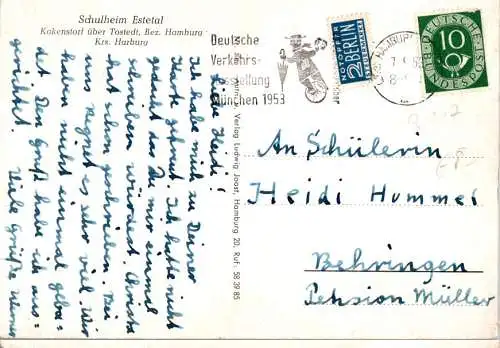 Schulheim Estetal
Kakenstorf über Tostedt, Bez. Hamburg
Krs. Harburg
Liebe Heidi!
Ich habe mich zu Deiner
Karte gefreut. Ich hätte nicht
gedacht das Du mir einmal
schreiben würdest. Christa
hat schon geschrieben. Bei
uns regnet es sehr viel. Wir
haben nicht einmal geba=
det. Den Gruß habe ich aus=
gerichtet. Viele Grüße
Verlag Ludwig Joost, Hamburg 20, Ruf: 58 39 85
Deutsche
Verkehrs-
Ausstellung
München 1953
NOTOPFER
2 BERLIN
STEUERMARKE
DEUTSCHE
BUNDESPOST
10
An Schülerin
Heidi Hummel
Behringen
Pension Müller